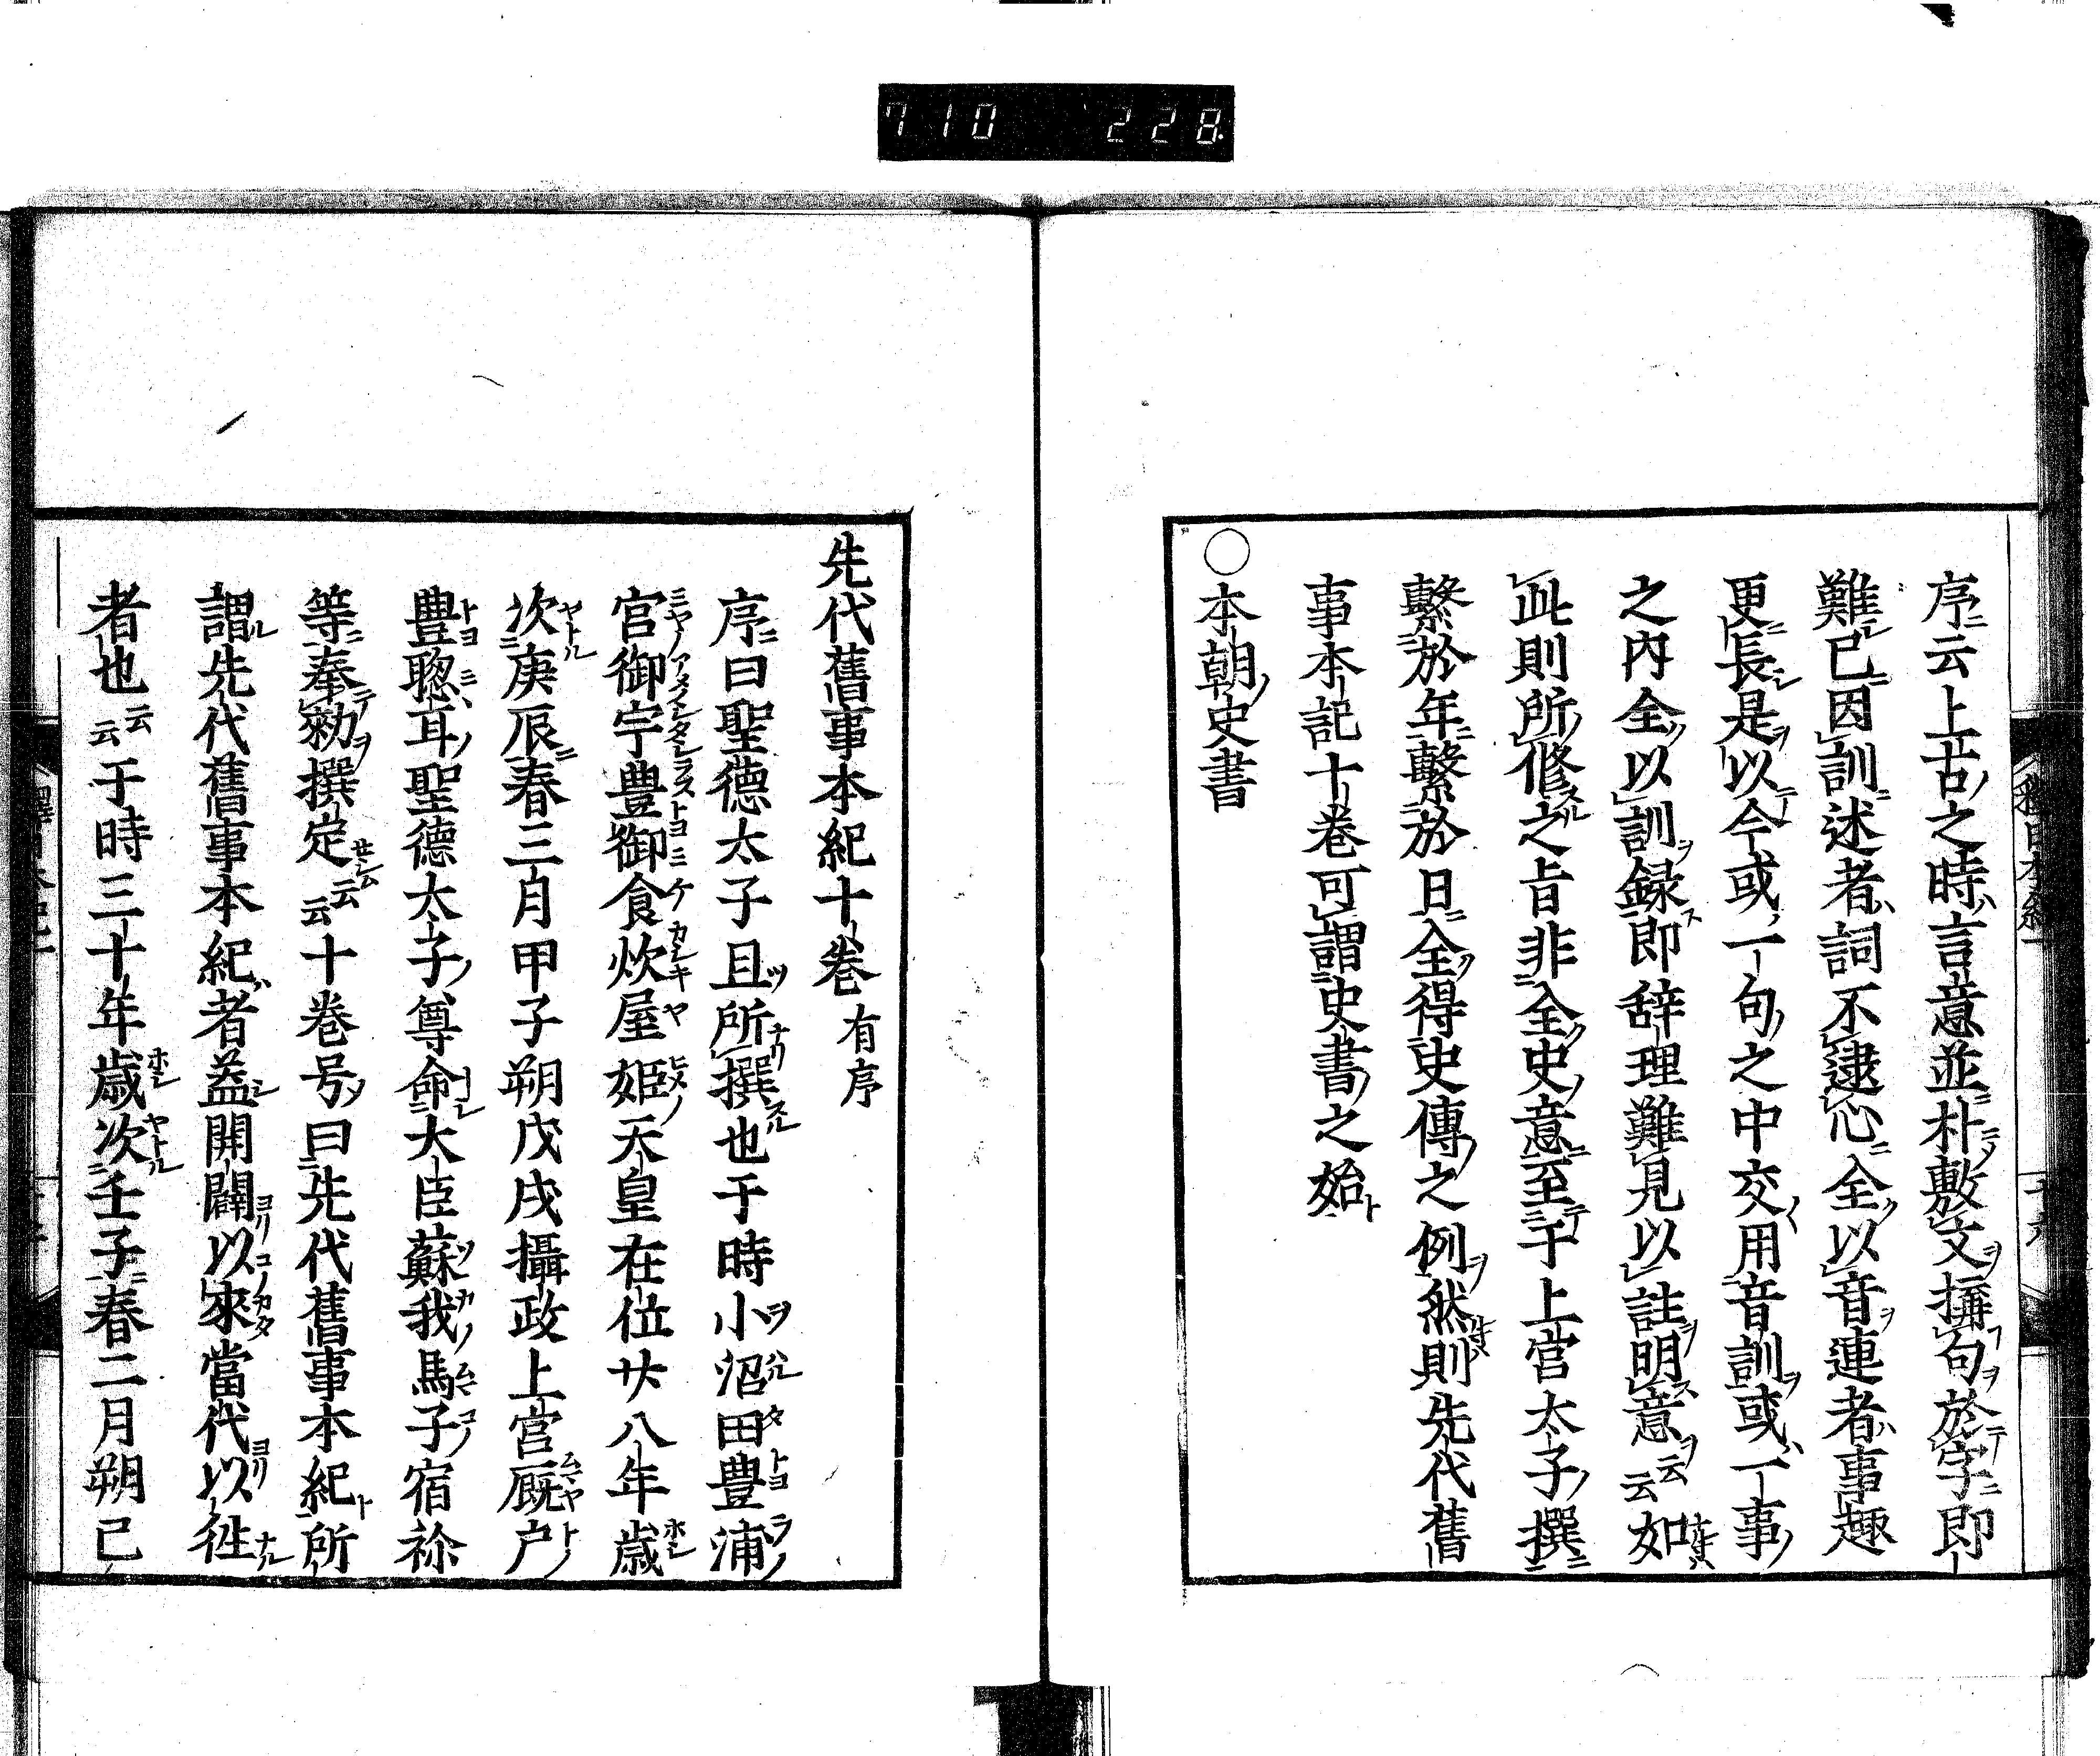 710 228
序云上古之時言意並朴敷文搆句於字即
難已因訓述者詞不逮心全以音連者事趣
更長是以今或一句之中交用音訓或一事
之内全以訓録即辞理難見以註明意云云如
此則所修之旨非全史意至于上宮太子撰
繫於年繫於日全得史傳之例然則先代舊
事本記十巻可謂史書之始
○本朝史書
先代舊事本紀十巻 有序
序曰聖徳太子且所撰也于時小沼田豊浦
宮御宇豊御食炊屋姫天皇在位廿八年歳
次庚辰春三月甲子朔戊戌攝政上宮厩戸
豊聡耳聖徳太子尊命大臣蘇我馬子宿祢
等奉勑撰定云云十巻号曰先代舊事本紀所
謂先代舊事本紀者盖開闢以來當代以徃
者也云云于時三十年歳次壬子春二月朔己